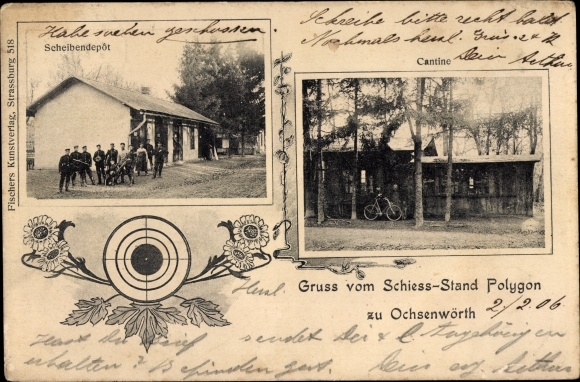 Habe soeben geschossen.
Scheibendepôt
Schreibe bitte recht bald
Nochmals herzl.
Dein Arthur
Cantine
Fischers Kunstverlag, Strassburg 518
Gruss vom Schiess-Stand Polygon
zu Ochsenwörth
2/2 06
Herzl.
Hast du sendet Dir & l. Angehörigen
erhalten? Befinden gut. Dein Arthur